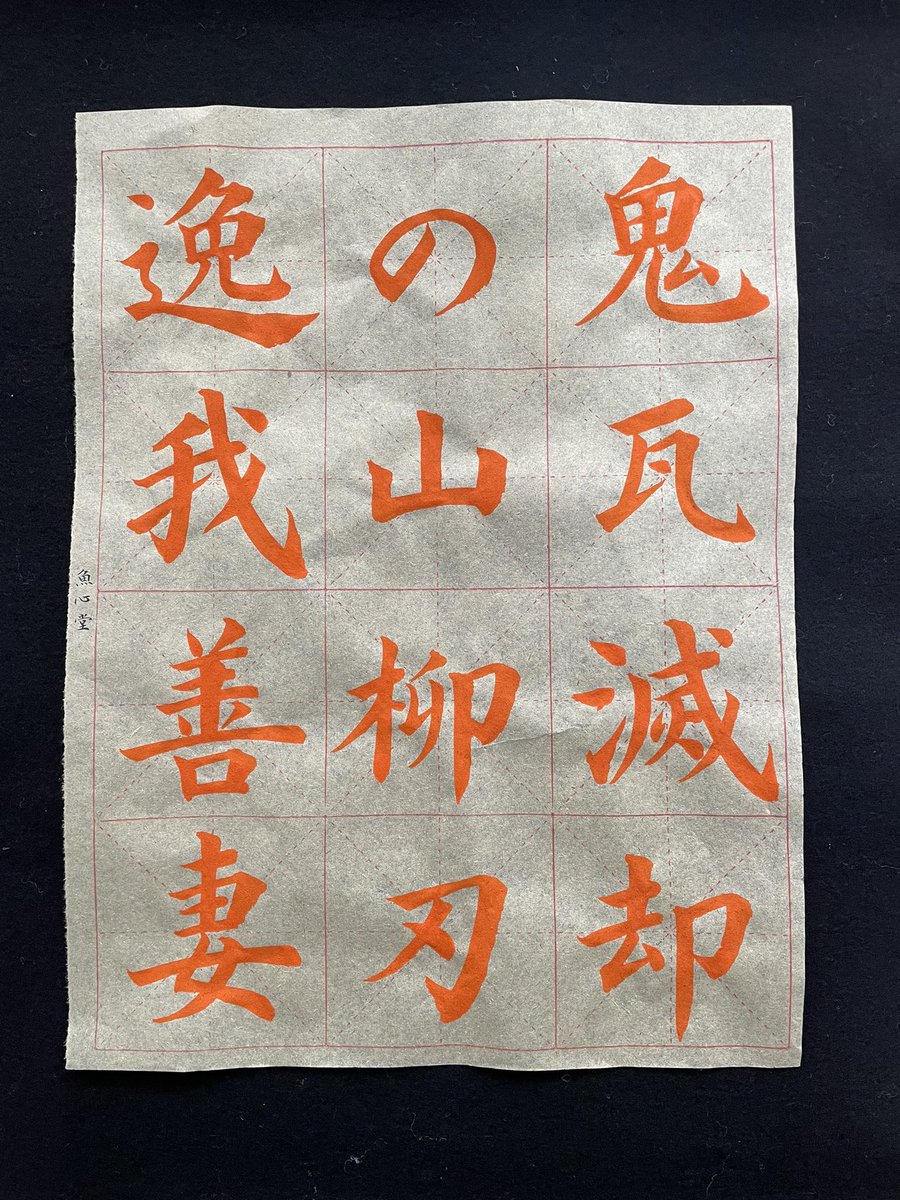 鬼瓦滅却
の山柳刃
逸我善妻
魚心堂